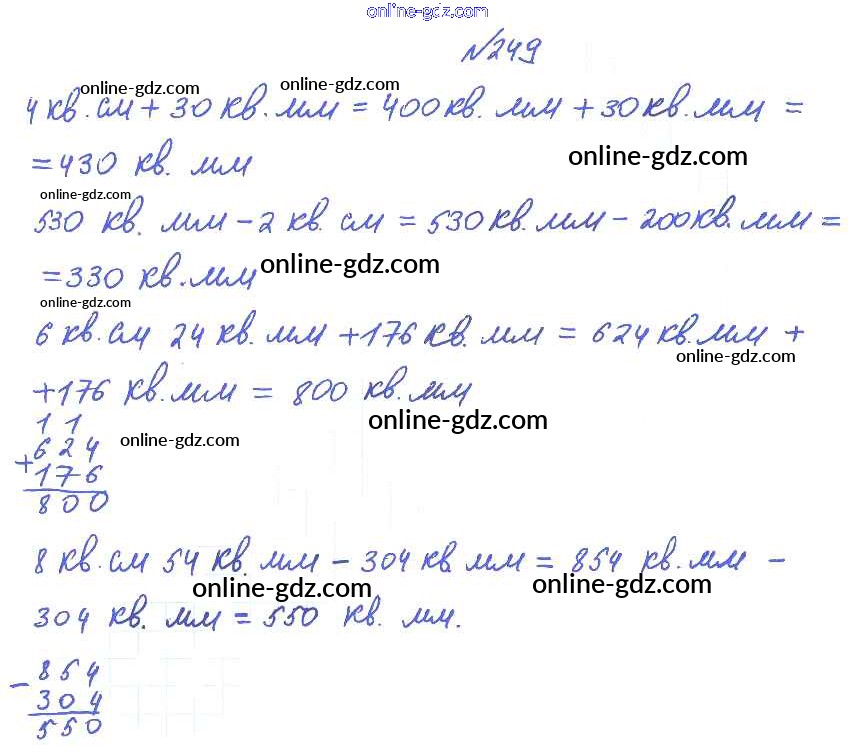 online-gdz.com
№249
online-gdz.com online-gdz.com
4 кв. см + 30 кв. мм = 400 кв. мм + 30 кв. мм =
= 430 кв. мм online-gdz.com
online-gdz.com
530 кв. мм - 2 кв. см = 530 кв. мм - 200 кв. мм =
= 330 кв. мм online-gdz.com
online-gdz.com
6 кв. см 24 кв. мм + 176 кв. мм = 624 кв. мм +
online-gdz.com
+ 176 кв. мм = 800 кв. мм
1 1 online-gdz.com
624 online-gdz.com
+
176
800
8 кв. см 54 кв. мм - 304 кв мм = 854 кв. мм -
online-gdz.com online-gdz.com
304 кв. мм = 550 кв. мм.
854
-
304
550